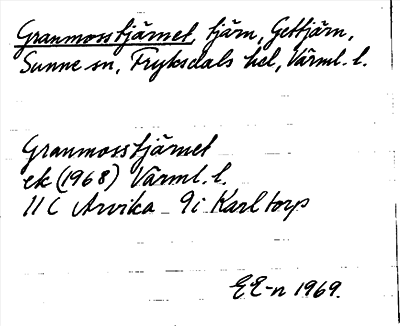 Granmosstjärnet, tjärn, Gettjärn,
Sunne sn, Fryksdals hd, Värml. l.
Granmosstjärnet
ek (1968) Värml. l.
11 C Arvika 9i Karltorp
EE-n 1969.